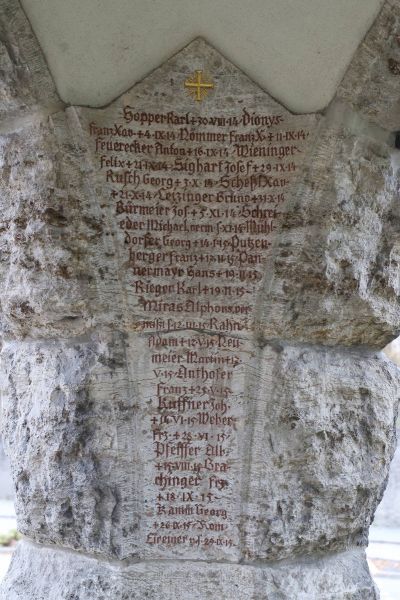 Hopper Karl + 30 · VIII · 14 · Dionys
franz Xav · + 4 · IX · 14 · Nömmer Franz X · + 11 · IX · 14
feuerecker Anton + 16 · IX · 14 · Wieninger
felix + 21 · IX · 14 · Sighart Josef + 29 · IX · 14
Rusch Georg + 3 · X · 14 · Xav
+ 21 · X · 14 · Leizinger + 31 · X · 14
Bürmeier Jos + 5 · XI · 14 · Schrei
eder Michael, verm · XI · 14 · Mühl
dorfer Georg + 14 · 15 · Putzen
berger franz + 15 · Dan
nermayr Hans + 19 · II · 15
Rieger Karl + 19 · II · 15
Miras Alphons, ver
mißt s · 12 · III · 15 Rahn
Adam + 12 · V · 15 · Neu
meier Martin + 12 ·
V · 15 · Anthofer
Franz + 25 · V · 15
Kuffner Joh
+ 16 · VI · 15 Weber
Frz · + 26 · VI · 15
Pfeffer Alb
+ 15 · VIII · 15 Bra
chinger Frz
+ 18 · IX · 15
Kamm Georg
+ 26 · IX · 15
29 · IX · 15